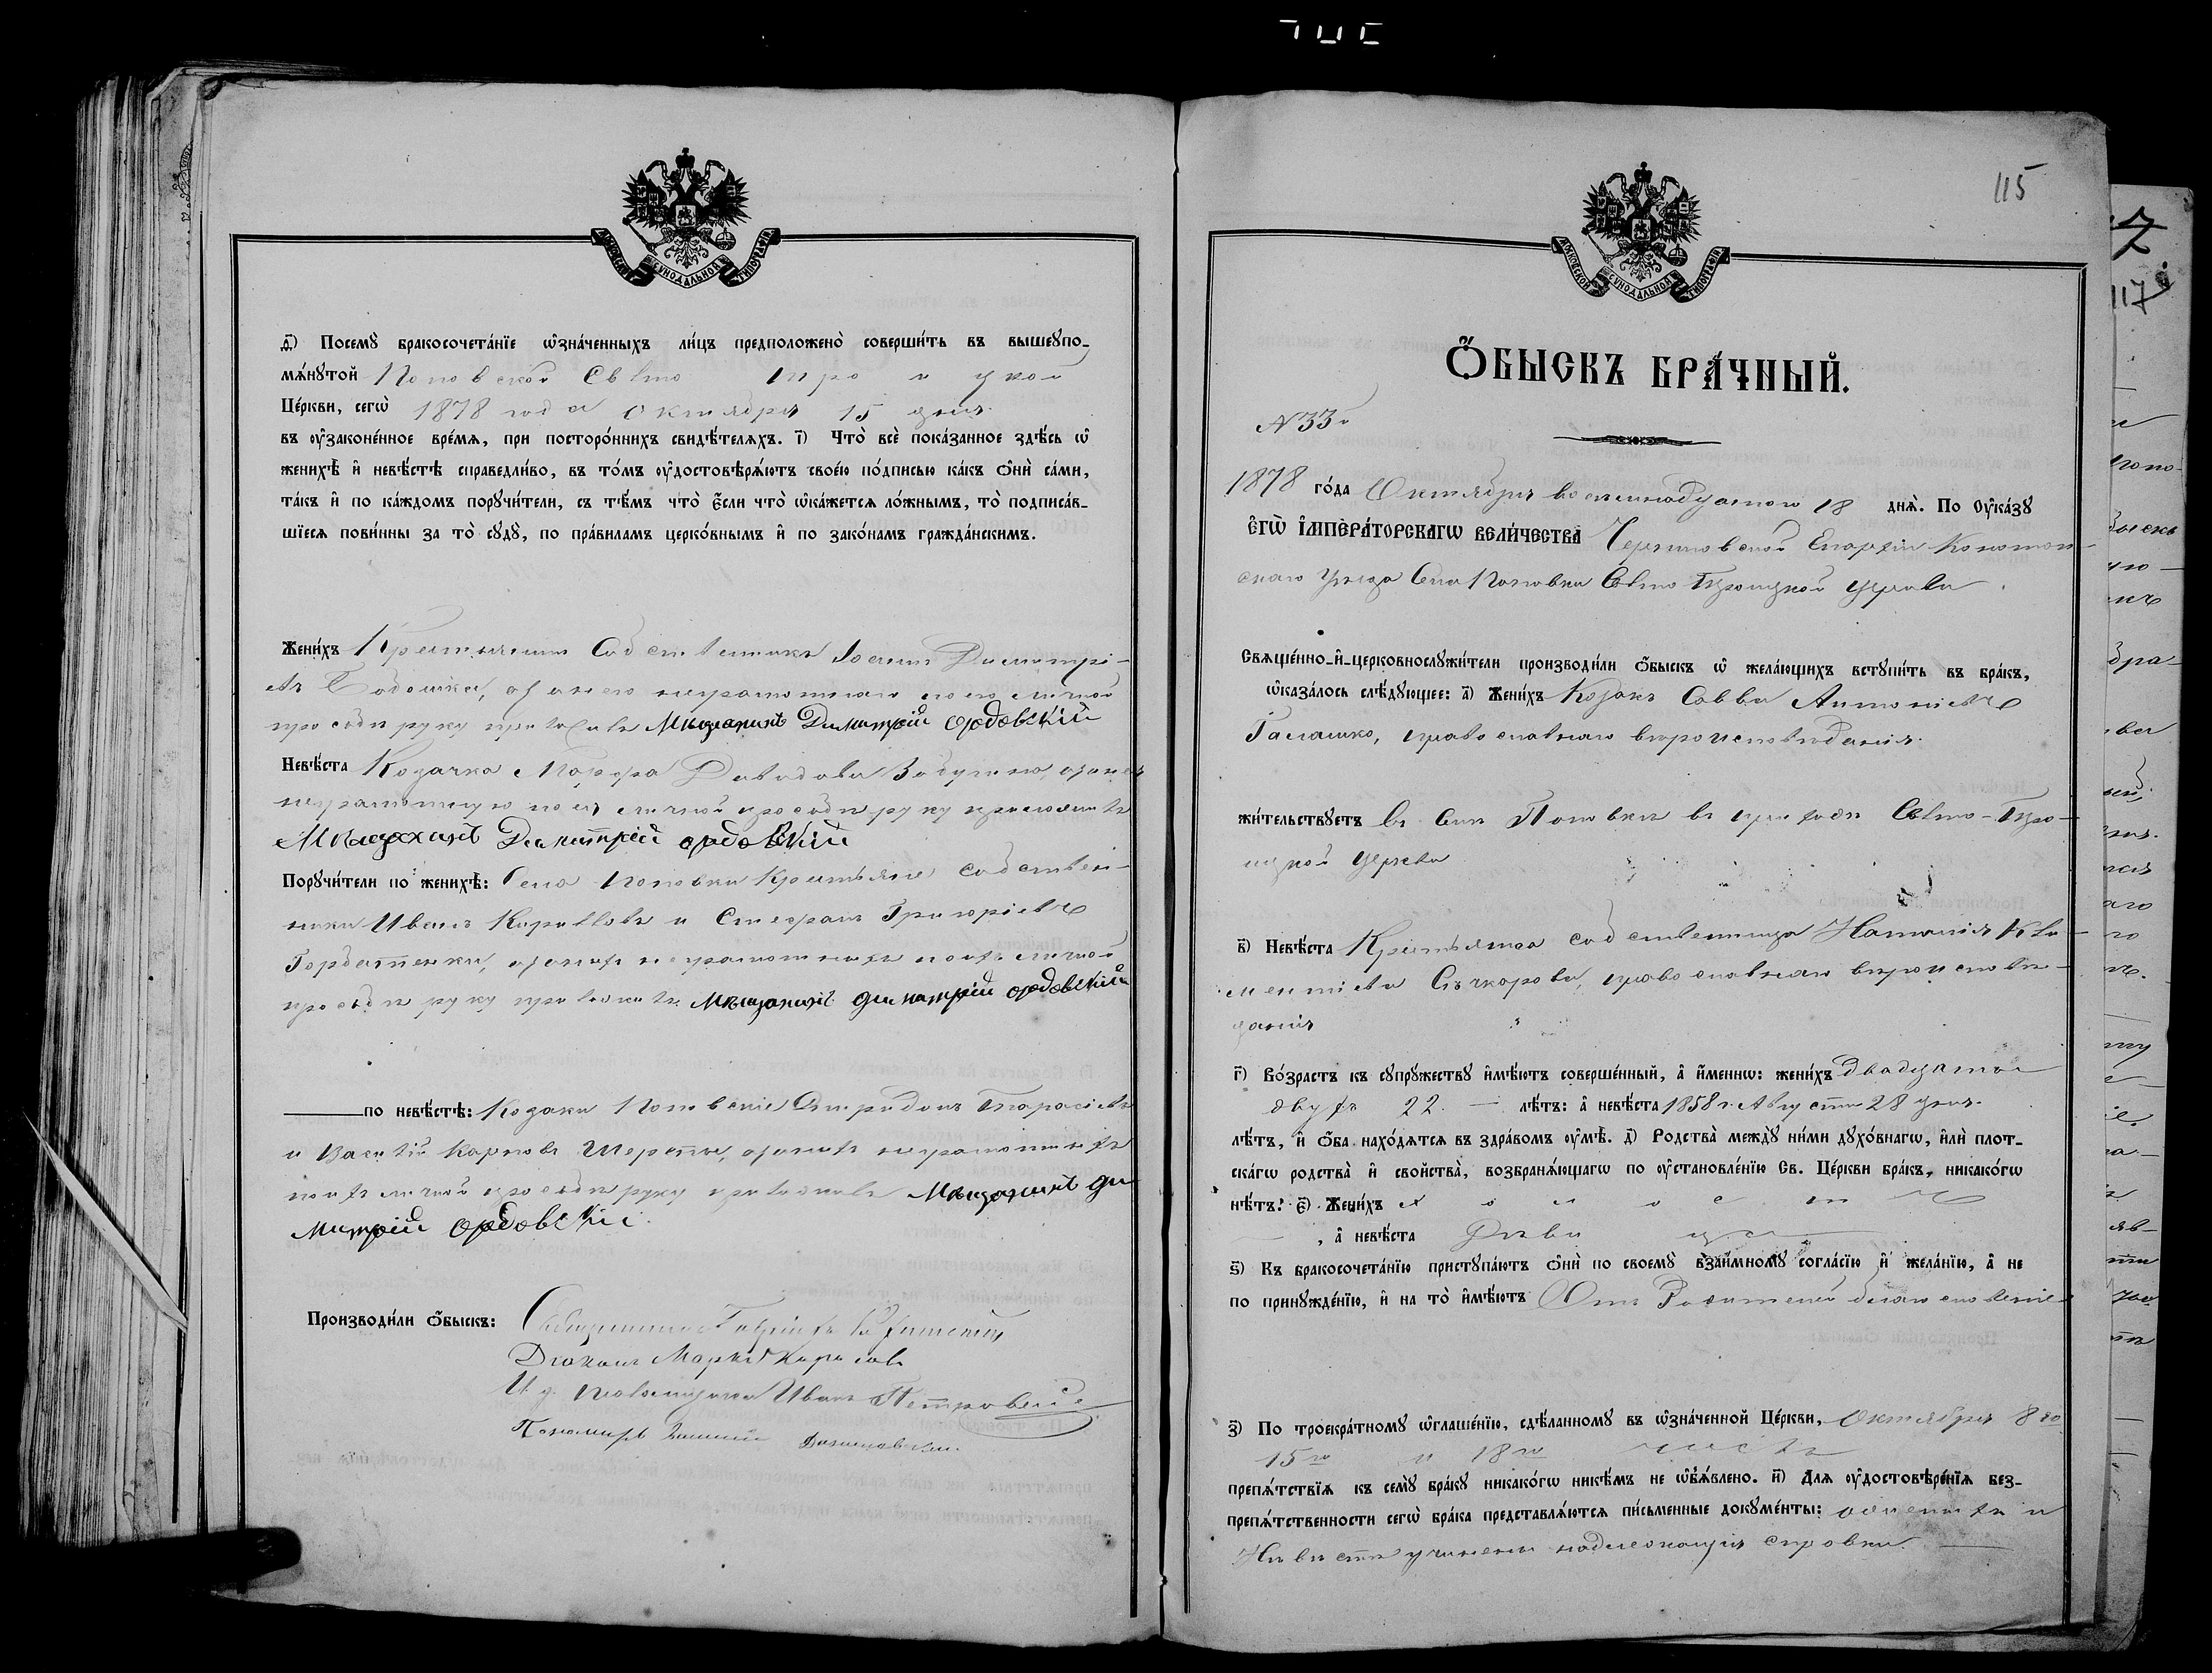 МОСКОВСКОЙ СѴНОДАЛЬНОЙ ТИПОГРАФІИ
ѳ҃) Посемꙋ̀ бракосочета́нїе ѡ҆зна́ченныхъ ли́цъ предположено̀ соверши́ть въ вышеꙋпо-
мѧ́нꙋтой Поповской Свято Троицкой
Це́ркви, сегѡ̀ 1878 года Октября 15 дня.
въ ᲂу҆законе́нное вре́мѧ, при посторо́ннихъ свидѣ́телѧхъ. і҃) Что̀ всѐ пока́занное здѣ́сь ѡ҆
женихѣ̀ и҆ невѣ́стѣ справедли́во, въ то́мъ ᲂу҆достовѣрѧ́ютъ свое́ю по́дписью ка́къ ѻ҆нѝ са́ми,
та́къ и҆ по ка́ждомъ порꙋчи́тели, съ тѣ́мъ что̀ є҆́сли что̀ ѡ҆ка́жетсѧ ло́жнымъ, то̀ подписа́в-
шїесѧ пови́нны за то̀ сꙋдꙋ̀, по пра́виламъ церко́внымъ и҆ по зако́намъ гражда́нскимъ.
Жени́хъ Крестьянинъ Собственникъ Іоаннъ Димитрі-
евъ, а за него неграмотнаго по его личной
просьбѣ руку приложилъ Мѣщанинъ Димитрій
Невѣ́ста Козачка Марфа Давидова, а за нея
неграмотную по ея личной просьбѣ руку приложилъ
Мѣщанинъ Димитрій
Порꙋчи́тели по женихѣ̀: Села Поповки Крестьяне Собствен-
ники Иванъ Кирилловъ и Стефанъ Григоріевъ
Горбатенки, а за нихъ неграмотныхъ по ихъ личной
просьбѣ руку приложилъ Мѣщанинъ Димитрій
по невѣ́стѣ: Козаки Поповскіе Спиридонъ Тарасіевъ
и Василій Карповъ, а за нихъ неграмотныхъ
по ихъ личной просьбѣ руку приложилъ Мѣщанинъ Ди
митрій
Производи́ли ѻ҆́быскъ: Священникъ
Діаконъ Марка
И. д. Псаломщика Иванъ Петровскій
Пономарь
115
МОСКОВСКОЙ СѴНОДАЛЬНОЙ ТИПОГРАФІИ
Ѻ҆́БЫСКЪ БРА́ЧНЫЙ.
№ 33й
1878 го́да Октября восемнадцатаго 18 днѧ̀. По Оу҆ка́зꙋ
Є҆ГѠ̀ И҆МПЕРА́ТОРСКАГѠ ВЕЛИ́ЧЕСТВА Черниговской Епархіи Конотоп-
скаго Уѣзда Села Поповки Свято Троицкой Церкви
Свѧще́нно-и҆-церковнослꙋжи́тели производи́ли ѻ҆́быскъ ѡ҆ жела́ющихъ встꙋпи́ть въ бра́къ,
ѡ҆каза́лось слѣ́дꙋющее: а҃) Жени́хъ Козакъ Савва Антоніевъ
Галашко, православнаго вѣроисповѣданія.
жи́тельствꙋетъ въ Селѣ Поповкѣ въ приходѣ Свято-Тро-
ицкой Церкви
в҃) Невѣ́ста Крестьянка собственница Наталія Кли-
ментіева, православнаго вѣроисповѣ-
данія
г҃) Во́зрастъ къ сꙋпрꙋ́жествꙋ и҆мѣ́ютъ соверше́нный, а҆ и҆́меннѡ: жени́хъ двадцати
двухъ 22. — лѣ́тъ: а҆ невѣ́ста 1858 г. Августа 28 дня.
лѣ́тъ, и҆ ѻ҆́ба нахо́дѧтсѧ въ здра́вомъ ᲂу҆мѣ̀. д҃) Родства̀ междꙋ̀ ни́ми дꙋхо́внагѡ, и҆лѝ плот-
ска́гѡ родства̀ и҆ свойства̀, возбранѧ́ющагѡ по ᲂу҆становле́нїю Св. Це́ркви бра́къ, никако́гѡ
нѣ́тъ. є҃) Жени́хъ холостъ
, а҆ невѣ́ста Дѣвица
ѕ҃) Къ бракосочета́нїю пристꙋпа́ютъ ѻ҆нѝ по своемꙋ̀ взаи́мномꙋ согла́сїю и҆ жела́нїю, а҆ не
по принꙋжде́нїю, и҆ на то̀ и҆мѣ́ютъ Отъ Родителей благословеніе
з҃) По троекра́тномꙋ ѡ҆глаше́нїю, сдѣ́ланномꙋ въ ѡ҆зна́ченной Це́ркви, Октября 8го
15го и 18го чиселъ
препѧ́тствїѧ къ семꙋ̀ бра́кꙋ никако́гѡ никѣ́мъ не ѡ҆б̾ѧ́влено. и҃) Длѧ ᲂу҆достовѣре́нїѧ без-
препѧ́тственности сегѡ̀ бра́ка представлѧ́ютсѧ пи́сьменные докꙋме́нты: о женихѣ и
Невѣстѣ учинены надлежащія справки.
117